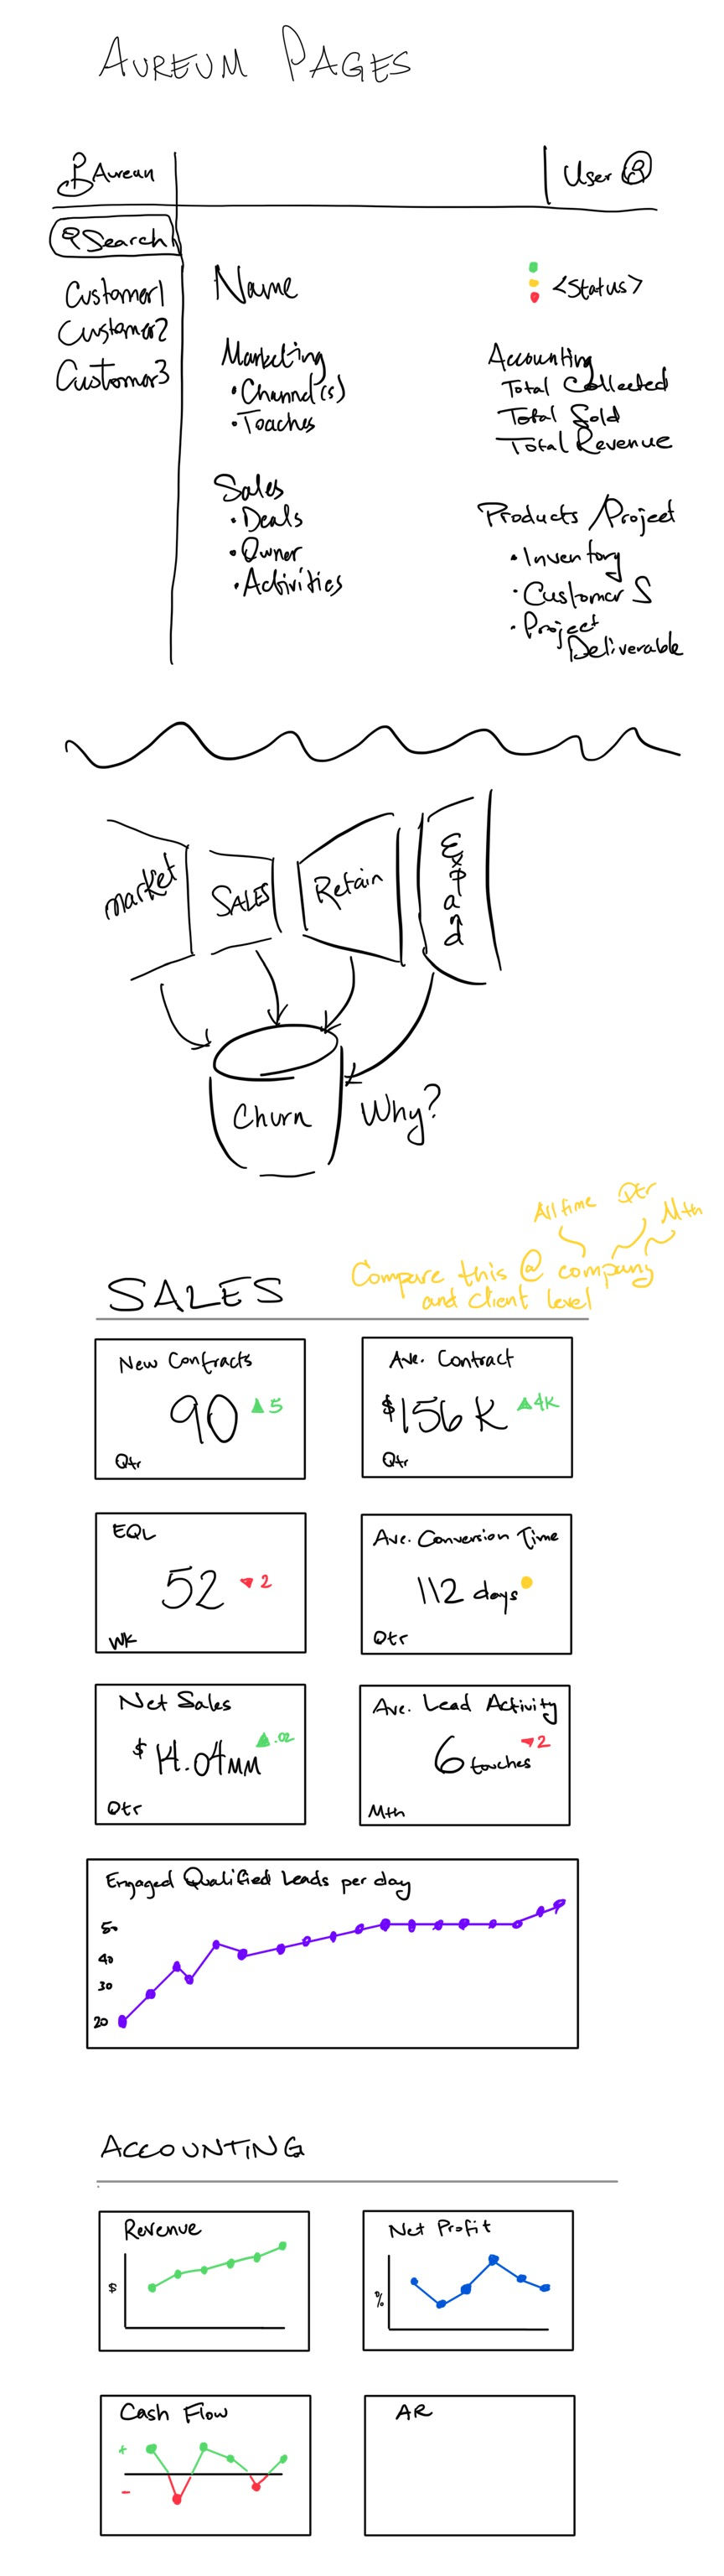 AUREUM PAGES
Aurean
User
Search
Customer1
Customer2
Customer3
Name
<Status>
Marketing
• Channel(s)
• Touches
Accounting
Total Collected
Total Sold
Total Revenue
Sales
• Deals
• Owner
• Activities
Products / Project
• Inventory
• Customer S
• Project
Deliverable
market
SALES
Retain
Expand
Churn
Why?
All time
Qtr
Mth
Compare this @ company
and client level
SALES
New Contracts
90 ▲5
Qtr
Ave. Contract
$156K ▲4K
Qtr
EQL
52 ▼2
WK
Ave. Conversion Time
112 days
Qtr
Net Sales
$14.04MM ▲.02
Qtr
Ave. Lead Activity
6 touches ▼2
Mth
Engaged Qualified Leads per day
50
40
30
20
ACCOUNTING
Revenue
$
Net Profit
%
Cash Flow
+
-
AR